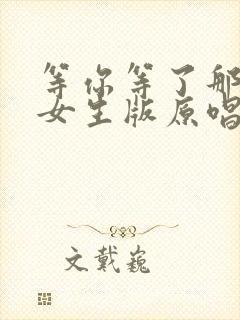 等你等了那
女生版原唱
文戴巍